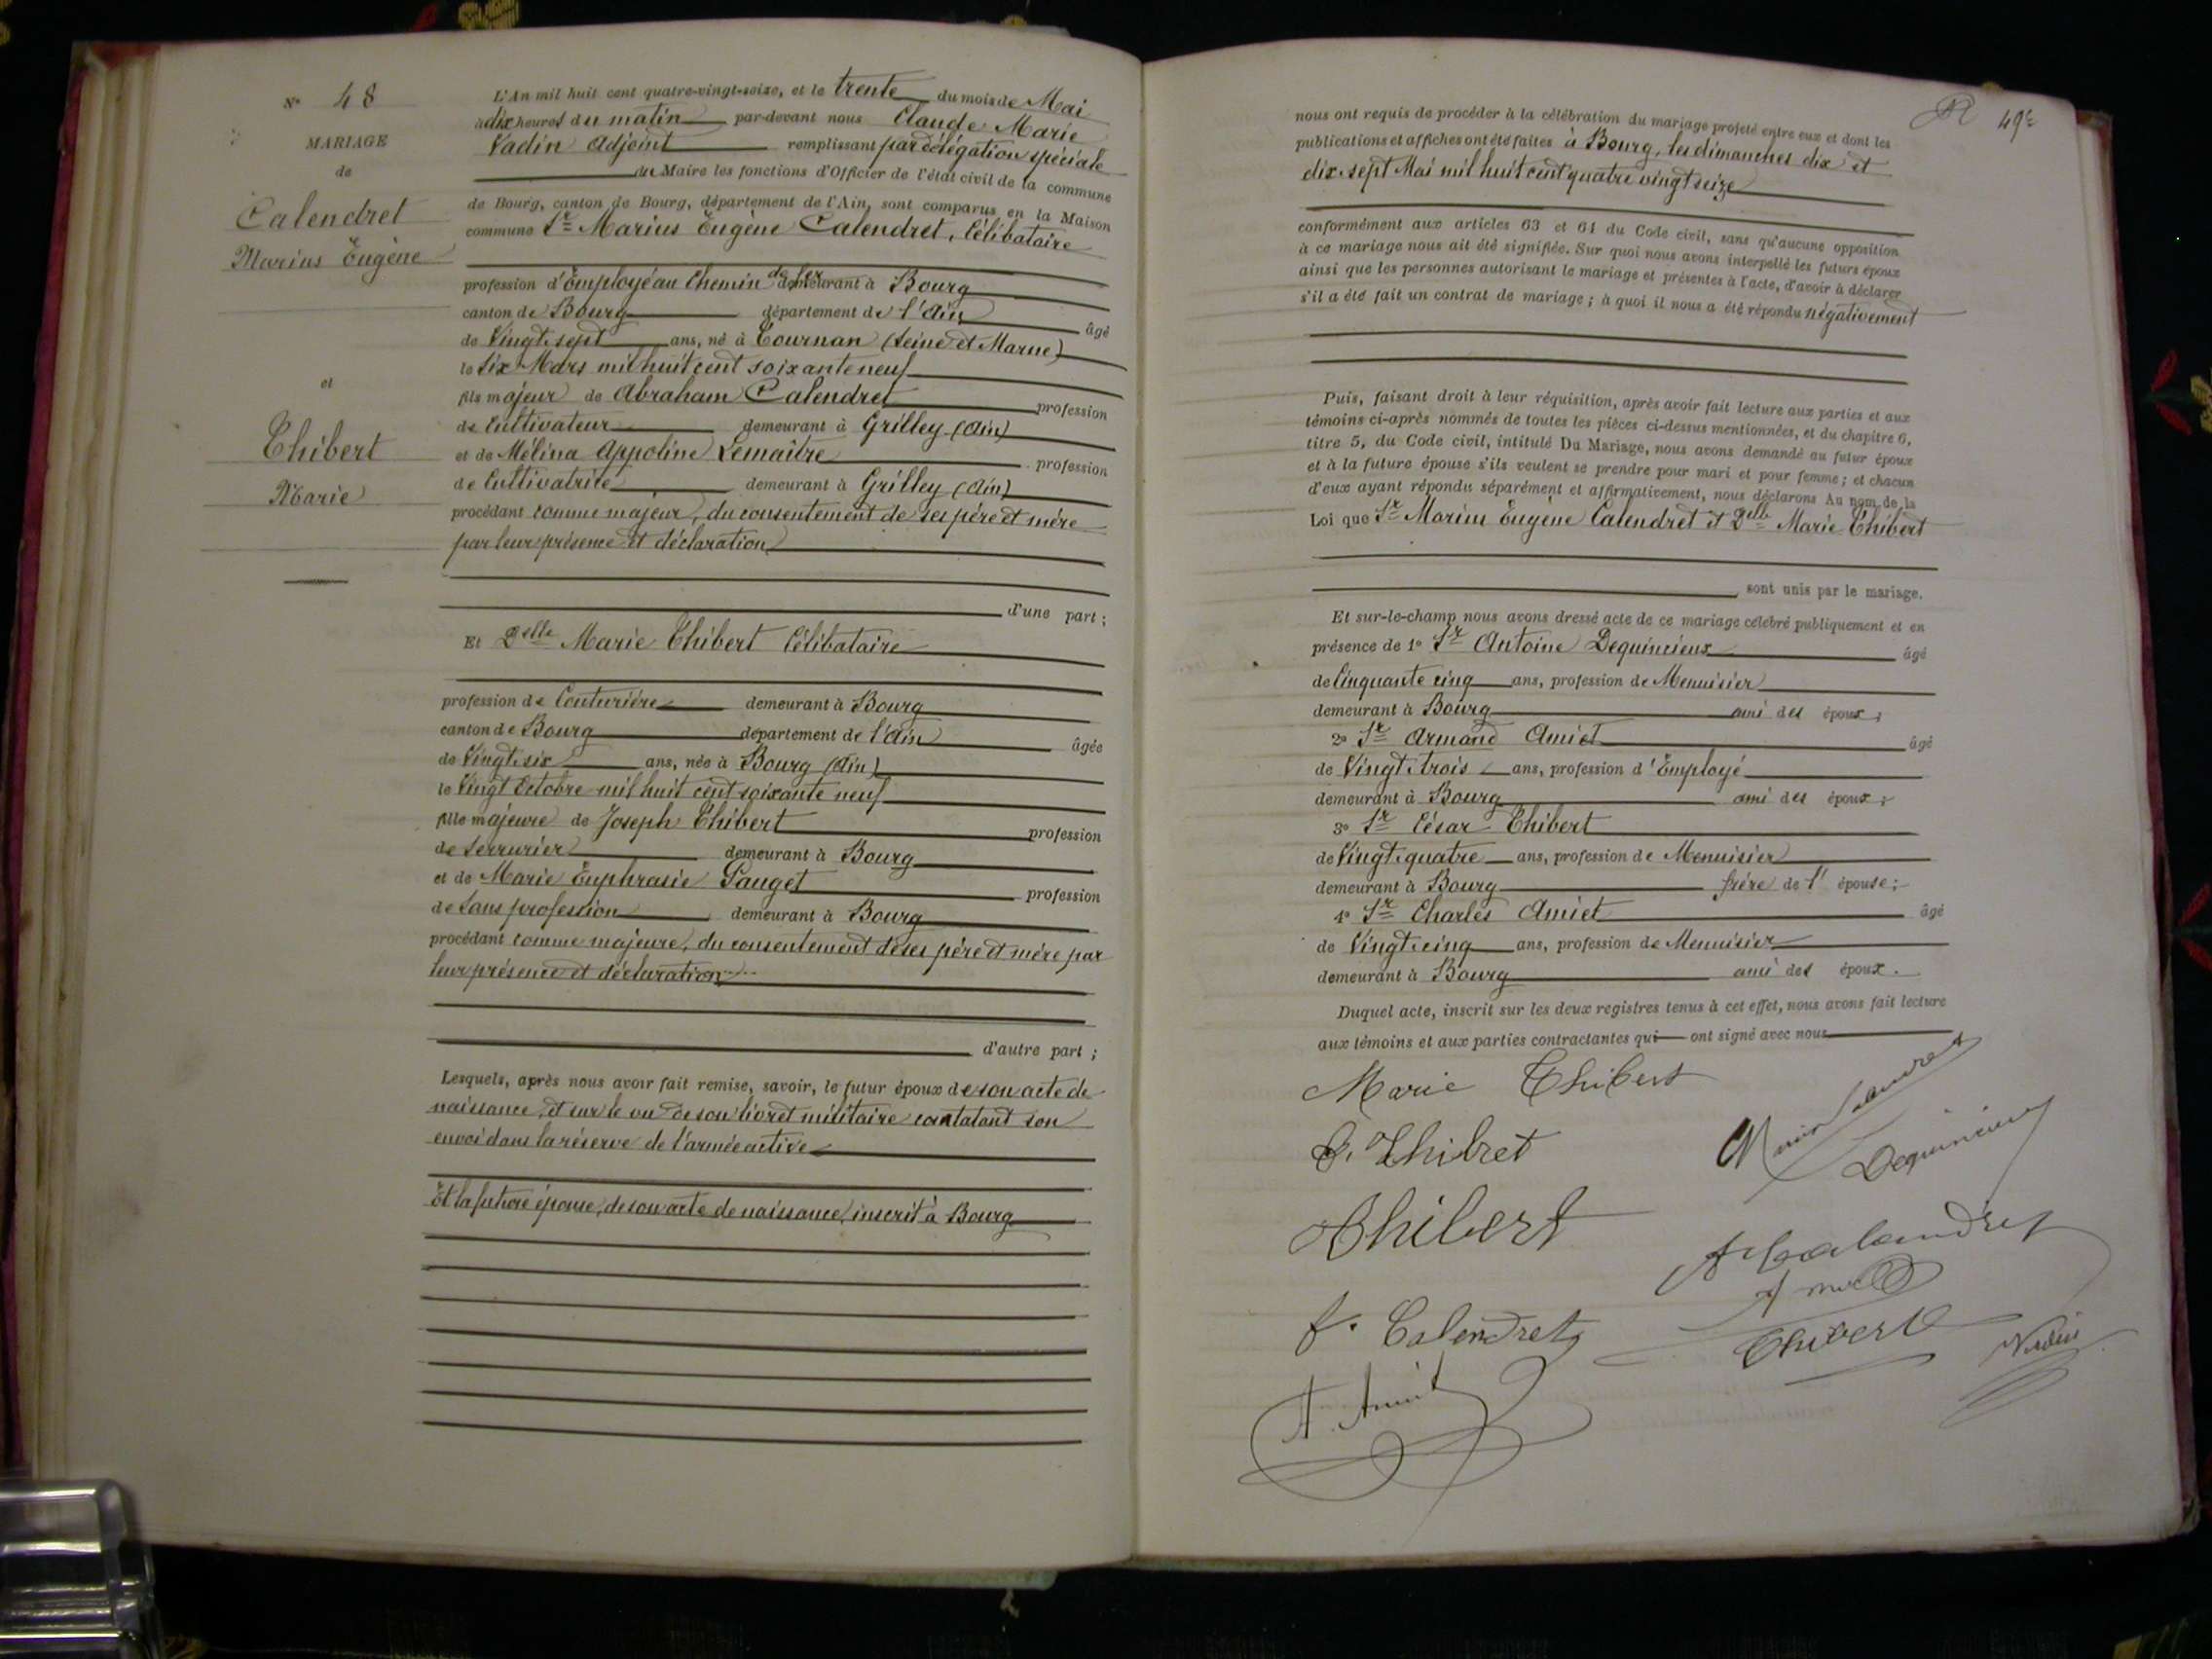 N° 48
MARIAGE
de
Calendret
Marius Eugène
et
Thibert
Marie
L'An mil huit cent quatre-vingt-seize, et le trente du mois de Mai
à dix heures du matin par-devant nous Claude Marie
Vadin Adjoint remplissant par délégation spéciale
du Maire les fonctions d'Officier de l'état civil de la commune
de Bourg, canton de Bourg, département de l'Ain, sont comparus en la Maison
commune Sr Marius Eugène Calendret, Célibataire
profession d'Employé au Chemin de fer demeurant à Bourg
canton de Bourg département de l'Ain âgé
de Vingt sept ans, né à Tournan (Seine et Marne)
le Six Mars mil huit cent soixante neuf
fils majeur de Abraham Calendret profession
de Cultivateur demeurant à Grilley (Ain)
et de Mélina Appoline Lemaître profession
de Cultivatrice demeurant à Grilley (Ain)
procédant comme majeur, du consentement de ses père et mère
par leur présence et déclaration
d'une part ;
Et Delle Marie Thibert Célibataire
profession de Couturière demeurant à Bourg
canton de Bourg département de l'Ain âgée
de Vingt six ans, née à Bourg (Ain)
le Vingt Octobre mil huit cent soixante neuf
fille majeure de Joseph Thibert profession
de Serrurier demeurant à Bourg
et de Marie Euphrasie Pauget profession
de Sans profession demeurant à Bourg
procédant comme majeure, du consentement de ses père et mère par
leur présence et déclaration
d'autre part ;
Lesquels, après nous avoir fait remise, savoir, le futur époux de son acte de
naissance, et sur le vu de son livret militaire constatant son
envoi dans la réserve de l'armée active
Et la future épouse, de son acte de naissance, inscrit à Bourg
49e
nous ont requis de procéder à la célébration du mariage projeté entre eux et dont les
publications et affiches ont été faites à Bourg, les dimanches dix et
dix-sept Mai mil huit cent quatre vingt seize
conformément aux articles 63 et 64 du Code civil, sans qu'aucune opposition
à ce mariage nous ait été signifiée. Sur quoi nous avons interpellé les futurs époux
ainsi que les personnes autorisant le mariage et présentes à l'acte, d'avoir à déclarer
s'il a été fait un contrat de mariage ; à quoi il nous a été répondu négativement
Puis, faisant droit à leur réquisition, après avoir fait lecture aux parties et aux
témoins ci-après nommés de toutes les pièces ci-dessus mentionnées, et du chapitre 6,
titre 5, du Code civil, intitulé Du Mariage, nous avons demandé au futur époux
et à la future épouse s'ils veulent se prendre pour mari et pour femme ; et chacun
d'eux ayant répondu séparément et affirmativement, nous déclarons Au nom de la
Loi que Sr Marius Eugène Calendret et Delle Marie Thibert
sont unis par le mariage.
Et sur-le-champ nous avons dressé acte de ce mariage célébré publiquement et en
présence de 1° Sr Antoine Dequincieux âgé
de Cinquante cinq ans, profession de Menuisier
demeurant à Bourg ami des époux ;
2° Sr Armand Amiet âgé
de Vingt trois ans, profession d'Employé
demeurant à Bourg ami des époux ;
3° Sr César Thibert
de Vingt quatre ans, profession de Menuisier
demeurant à Bourg frère de l'épouse ;
4° Sr Charles Amiet âgé
de Vingt cinq ans, profession de Menuisier
demeurant à Bourg ami des époux.
Duquel acte, inscrit sur les deux registres tenus à cet effet, nous avons fait lecture
aux témoins et aux parties contractantes qui ont signé avec nous
Marie Thibert
Dequincieux
Thibert
Calendret
Thibert
A. Amiet